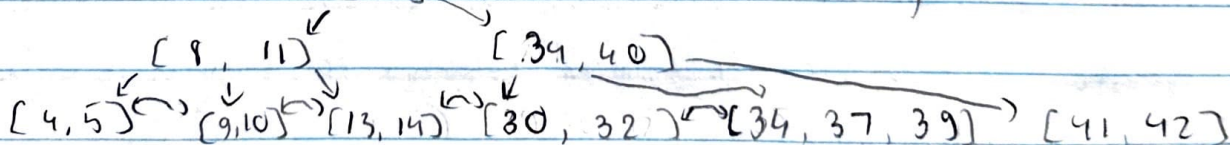 [8, 11] [34, 40]
[4, 5] [9,10] [13, 14] [30, 32] [34, 37, 39] [41, 42]